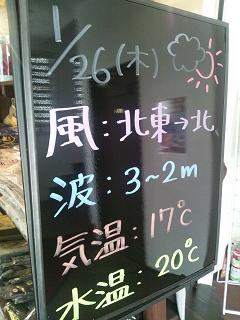 1/26(木)
風:北東→北
波:3~2m
気温:17℃
水温:20℃